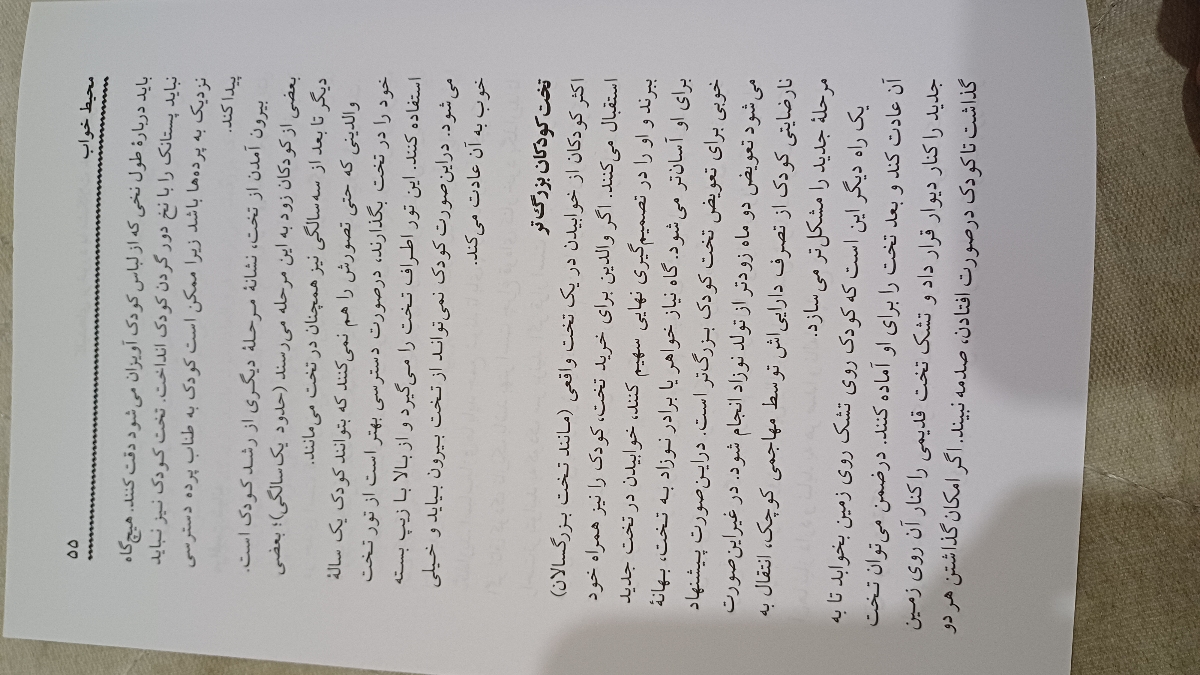 محیط خواب ۵۵
باید دربارهٔ طول نخی که از لباس کودک آویزان می‌شود دقت کنند. هیچ‌گاه
نباید پستانک را با نخ دور گردن کودک انداخت. تخت کودک نیز نباید
نزدیک به پرده‌ها باشد زیرا ممکن است کودک به طناب پرده دسترسی
پیدا کند.
بیرون آمدن از تخت، نشانهٔ مرحلهٔ دیگری از رشد کودک است.
بعضی از کودکان زود به این مرحله می‌رسند (حدود یک‌سالگی)؛ بعضی
دیگر تا بعد از سه‌سالگی نیز همچنان در تخت می‌مانند.
والدینی که حتی تصورش را هم نمی‌کنند که بتوانند کودک یک سالهٔ
خود را در تخت بگذارند، درصورت دسترسی بهتر است از تور تخت
استفاده کنند. این تور اطراف تخت را می‌گیرد و از بالا با زیپ بسته
می‌شود. دراین‌صورت کودک نمی‌تواند از تخت بیرون بیاید و خیلی
خوب به آن عادت می‌کند.
تخت کودکان بزرگ‌تر
اکثر کودکان از خوابیدن در یک تخت واقعی (مانند تخت بزرگسالان)
استقبال می‌کنند. اگر والدین برای خرید تخت، کودک را نیز همراه خود
ببرند و او را در تصمیم‌گیری نهایی سهیم کنند، خوابیدن در تخت جدید
برای او آسان‌تر می‌شود. گاه نیاز خواهر یا برادر نوزاد به تخت، بهانهٔ
خوبی برای تعویض تخت کودک بزرگ‌تر است. دراین‌صورت پیشنهاد
می‌شود تعویض دو ماه زودتر از تولد نوزاد انجام شود. در غیراین‌صورت
نارضایتی کودک از تصرف دارایی‌اش توسط مهاجمی کوچک، انتقال به
مرحلهٔ جدید را مشکل‌تر می‌سازد.
یک راه دیگر این است که کودک روی تشک روی زمین بخوابد تا به
آن عادت کند و بعد تخت را برای او آماده کنند. درضمن می‌توان تخت
جدید را کنار دیوار قرار داد و تشک تخت قدیمی را کنار آن روی زمین
گذاشت تا کودک درصورت افتادن، صدمه نبیند. اگر امکان گذاشتن هر دو